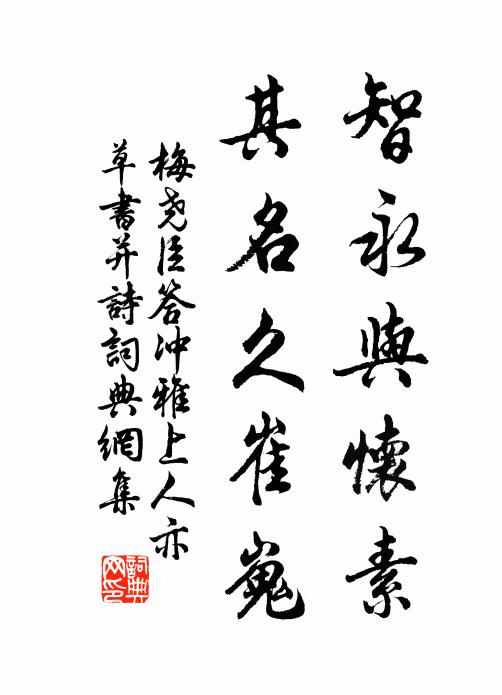 智永與懷素
其名久崔嵬
梅堯臣答沖雅上人亦
草書并詩詞典網集
詞典
网印